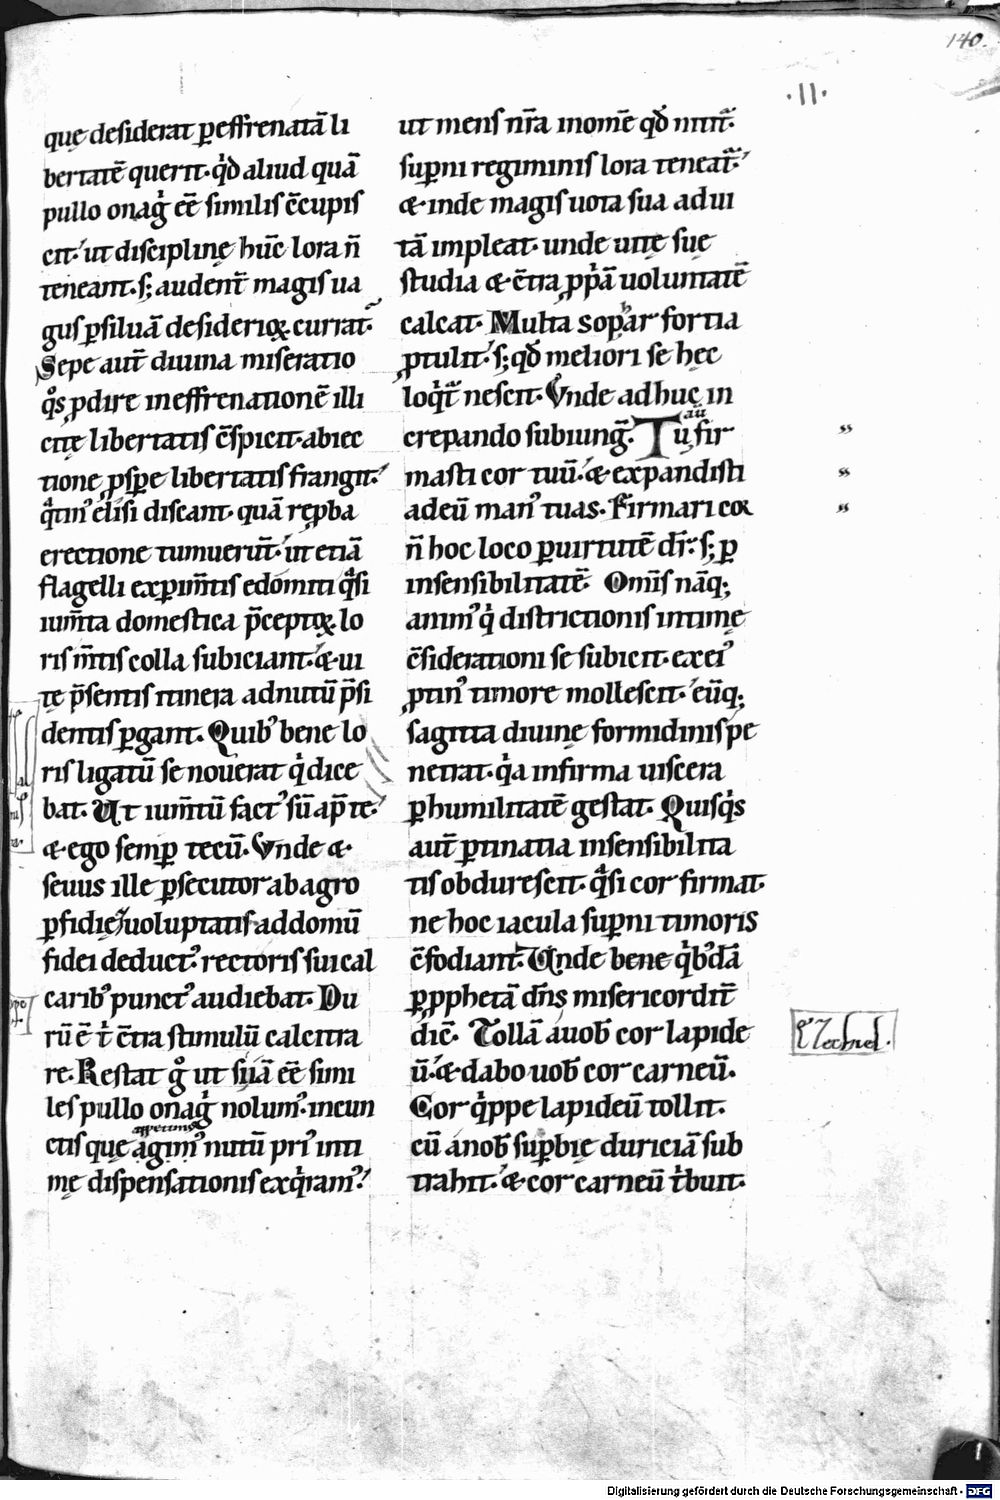 140.
·II·
quę desiderat p̲effrenatā li
bertatē querit· qͥd aliud quā
pullo onagͥ ēē similis ↄ̄cupis
cit·ʼ ut disciplinę hūc lora n̄
teneant· s; audent̄ magis ua
gus p̲siluā desiderioꝝ currat·
Sepe aut̄ diuina miseratio
qͦs ꝓdire ineffrenationē illi
citę libertatis ↄ̄spicit· abiec
tione ꝓspe libertatis frangit·ʼ
qͣtinꝰ elisi discant· quā rep̲ba
erectione tumuerūt·ʼ ut etiā
flagelli exp̲im̄tis edomiti qͣsi
ium̄ta domestica p̄ceptoꝝ lo
ris m̄tis colla subiciant·ʼ & ui
tę p̄sentis itinera adnutū p̄si
dentis p̲gant· Quibꝰ bene lo
ris ligatū se nouerat qͥ dice
bat· Ut ium̄tū factꝰ sū ap̄ te·ʼ
& ego semp̲ tecū· Vnde &
seuus ille p̲secutor abagro
p̲fidię uoluptatis addomū
fidei deductꝰ· rectoris sui cal
caribꝰ punctꝰ audiebat· Du
rū ē tͥ ↄ̄tra stimulū calcitra
re· Restat gͦ ut siͣ ēē simi
les pullo onagͥ nolumꝰ· incun
appetimꝰ
ctis quę agimꝰ nutū priꝰ inti
mę dispensationis exqͥramꝰ·ʼ
ut mens nr̄a inom̄e qd̄ nitit̄·
sup̲ni regiminis lora teneat̄·ʼ
& inde magis uota sua adui
tā impleat· unde uitę suę
studia & ↄ̄tra ꝓpͥā uoluntatē
calcat· Multa sophar fortia
ꝓtulit·ʼ s; qd̄ meliori se hęc
loqͥt̄ nescit· Vnde adhuc in
crepando subiunḡ· Tu aū fir
masti cor tuū·ʼ & expandisti
adeū manꝰ tuas· Firmari cor
n̄ hoc loco p̲uirtutē dr̄· s; p̲
insensibilitatē· Om̄is nāq;
animꝰ qͥ districtionis intimę
ↄ̄siderationi se subicit· exeiꝰ
ꝓtinꝰ timore mollescit·ʼ eūq;
sagitta diuinę formidinis pe
netrat· qͥa infirma uiscera
p̲humilitatē gestat· Quisqͥs
aut̄ p̲tinatia insensibilita
tis obdurescit· qͣsi cor firmat·
ne hoc iacula sup̲ni timoris
ↄ̄fodiant· Unde bene qͥbꝰdā
p̲ꝓphetā dn̄s misericordit̄
dic̄· Tollā auob̄ cor lapide
ū·ʼ & dabo uob̄ cor carneū·
Cor qͥppe lapideū tollit·
cū anob̄ sup̲bię duriciā sub
trahit·ʼ & cor carneū tͥbuit·
Digitalisierung gefördert durch die Deutsche Forschungsgemeinschaft · DFG